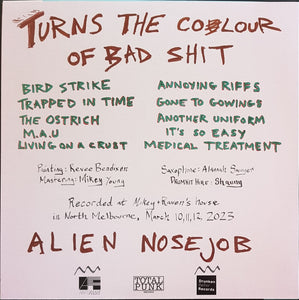 TURNS THE COLOUR
OF BAD SHIT
BIRD STRIKE
TRAPPED IN TIME
THE OSTRICH
M.A.U
LIVING ON A CRUST
ANNOYING RIFFS
GONE TO GOWINGS
ANOTHER UNIFORM
IT'S SO EASY
MEDICAL TREATMENT
Painting: Renee Bendixen
Mastering: Mikey Young
Saxophone:
Recorded at Mikey + Raven's House
in North Melbourne, March 10,11,12 2023
ALIEN NOSEJOB
TOTAL
PUNK
RECORDS
Drunken
Sailor
Records